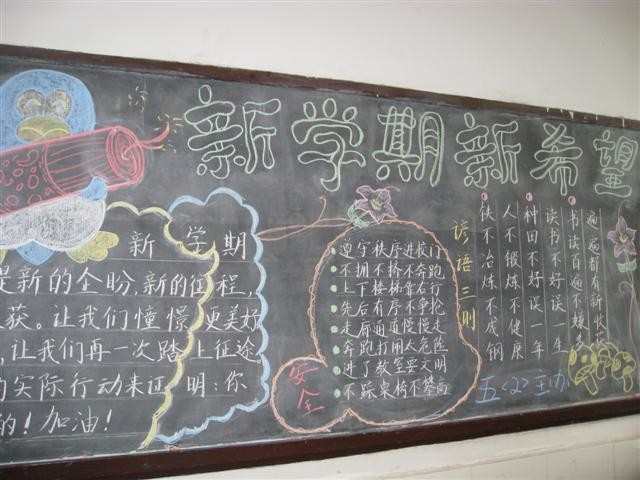 新学期新希望
新学期
是新的企盼,新的征程,
获。让我们憧憬更美好
,让我们再一次踏上征途
的实际行动来证明:你
的!加油!
安全
遵守秩序进校门
不拥不挤不奔跑
上下楼梯靠右行
先后有序不争抢
走廊通道慢慢走
奔跑打闹危险
进了教室要文明
不踩桌椅不攀高
谚语三则
书读百遍不嫌多
遍遍都有新收
读书不好误一生
种田不好误一年
人不锻炼不健康
铁不冶炼不成钢
五(2)主办